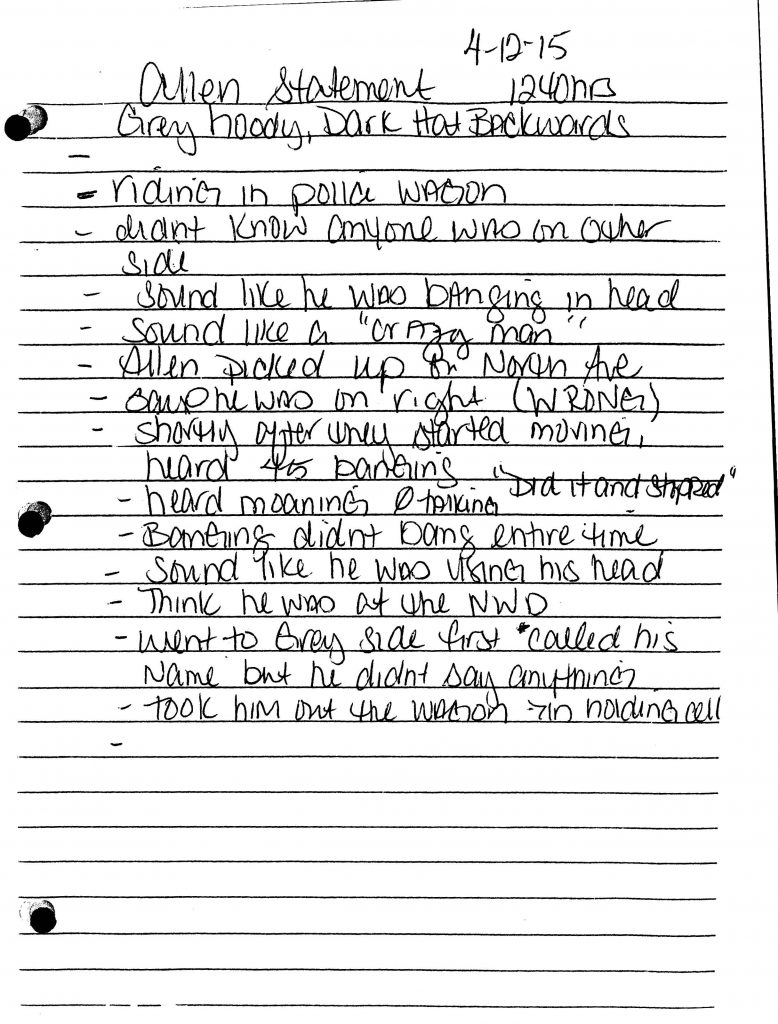 4-12-15
Allen Statement 1240hrs
Grey hoody, Dark Hat Backwards
-
- riding in police wagon
- didnt know anyone was on other
side
- sound like he was banging in head
- sound like a "crazy man"
- Allen picked up on North Ave
- said he was on right (WRONG)
- shortly after they started moving,
heard 4-5 banging "Did it and stopped"
- heard moaning Ø talking
- Banging didnt bang entire time
- Sound like he was using his head
- Think he was at the NWD
- went to Grey side first *called his
Name but he didnt say anything
- took him out the wagon → in holding cell
-